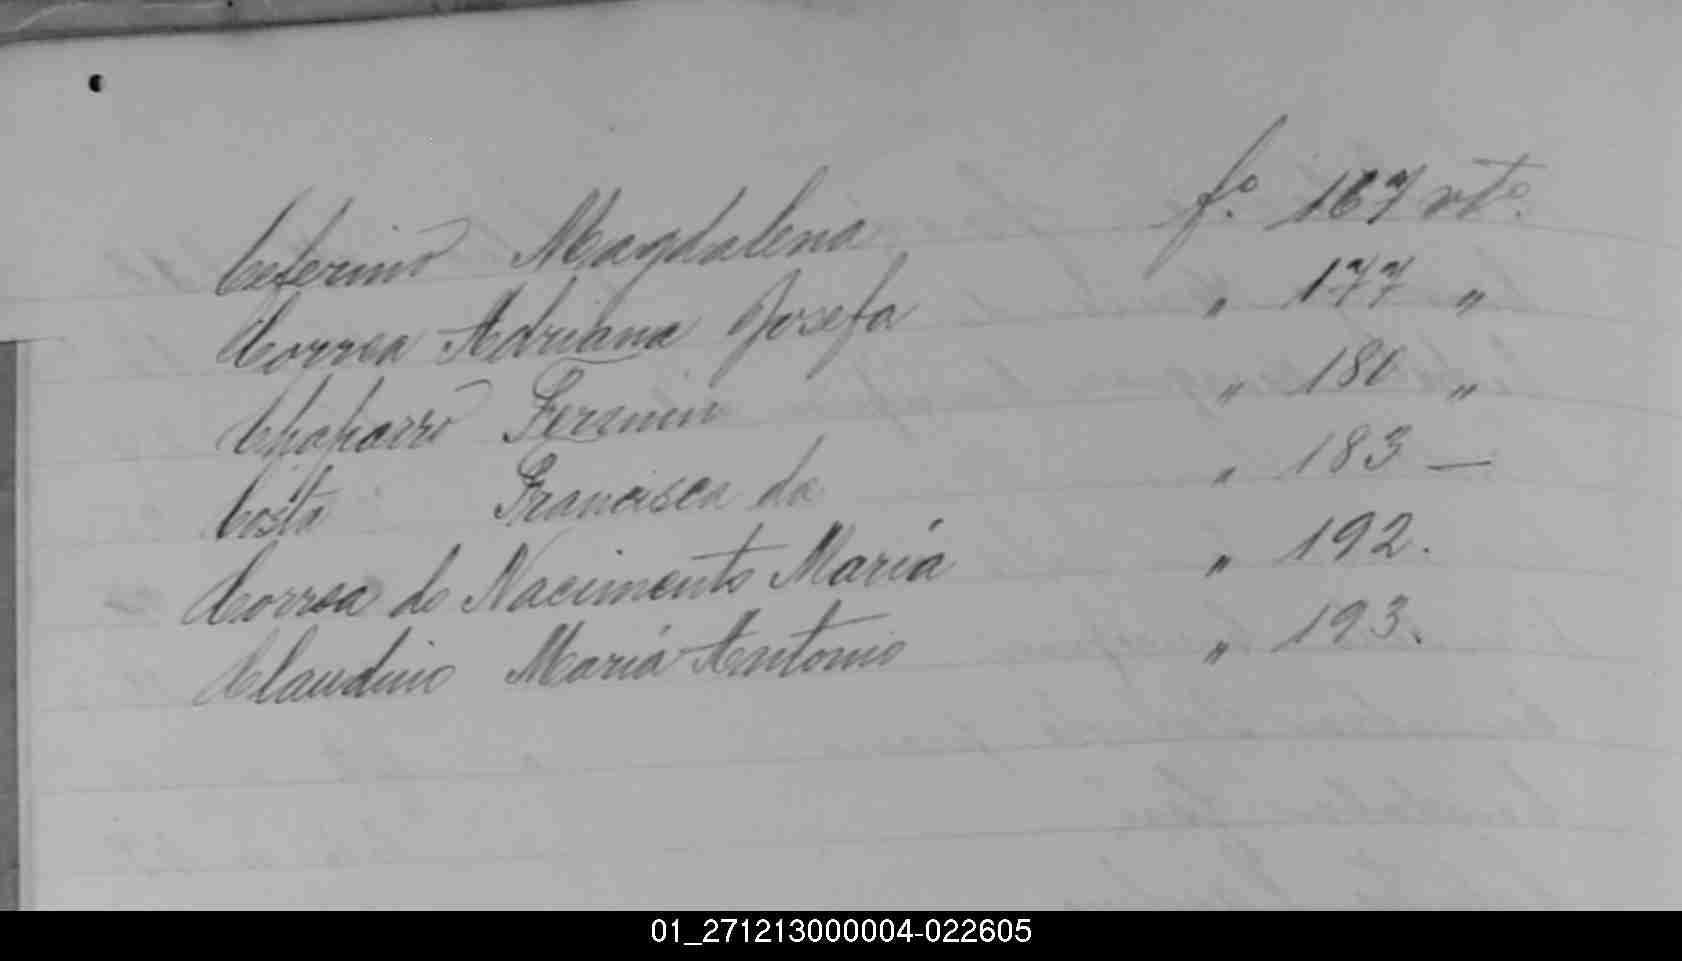 Ceferino Magdalena fo. 167 vto.
Correa Adriana Josefa " 177 "
Chaparro Fermin " 180 "
Costa Francisca da " 183 —
Correa do Nacimento María " 192.
Claudino María Antonio " 193.
01_271213000004-022605